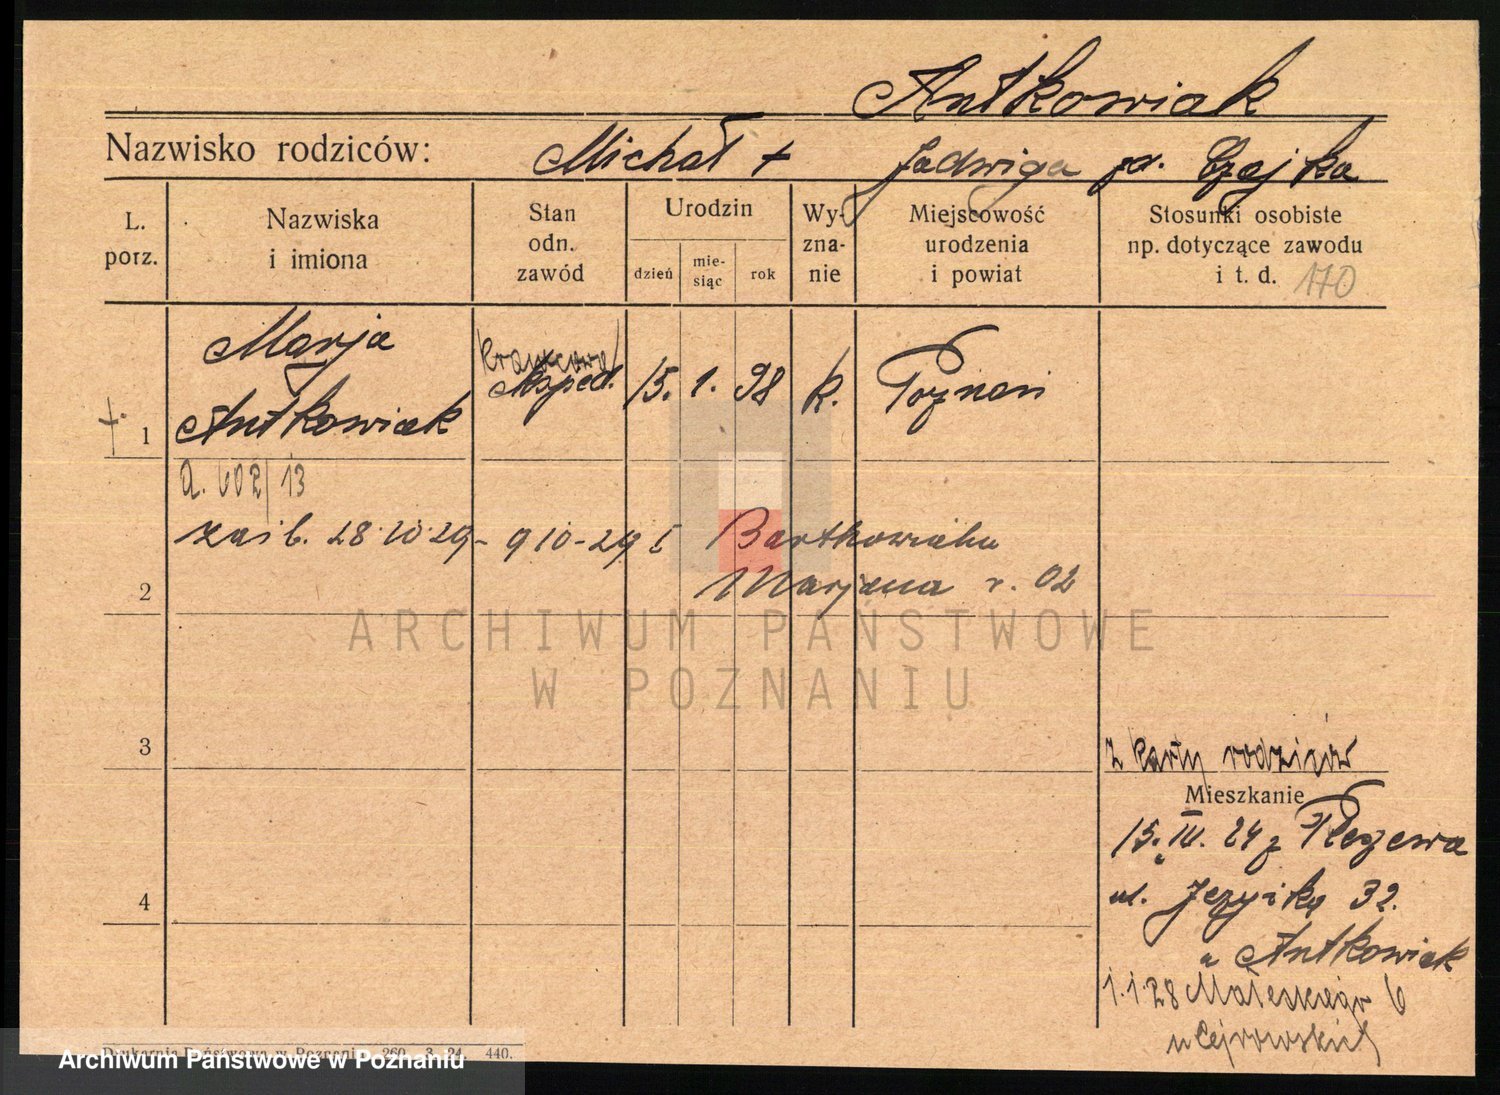 Antkowiak
Nazwisko rodziców: Michał + Jadwiga zd. Czajka
L. porz.
Nazwiska i imiona
Stan odn. zawód
Urodzin
dzień
mie-siąc
rok
Wy-zna-nie
Miejscowość urodzenia i powiat
Stosunki osobiste np. dotyczące zawodu i t. d. 170
Marja
krawcowa
eksped. 15. 1. 98 k. Poznań
+ 1 Antkowiak
a. 602/13
zaśb. 28.10.29 - 910-29 I Bartkowiaka
2 Marjana r. 02
ARCHIWUM PAŃSTWOWE
W POZNANIU
3
z karty rodziców
Mieszkanie
15. III. 24 z Pleszewa
4
ul. Jeżycka 32.
u Antkowiak
1.1.28 Małeckiego 6
u Cejrowskich
Drukarnia Państwowa w Poznaniu 260 3. 24. 440.
Archiwum Państwowe w Poznaniu